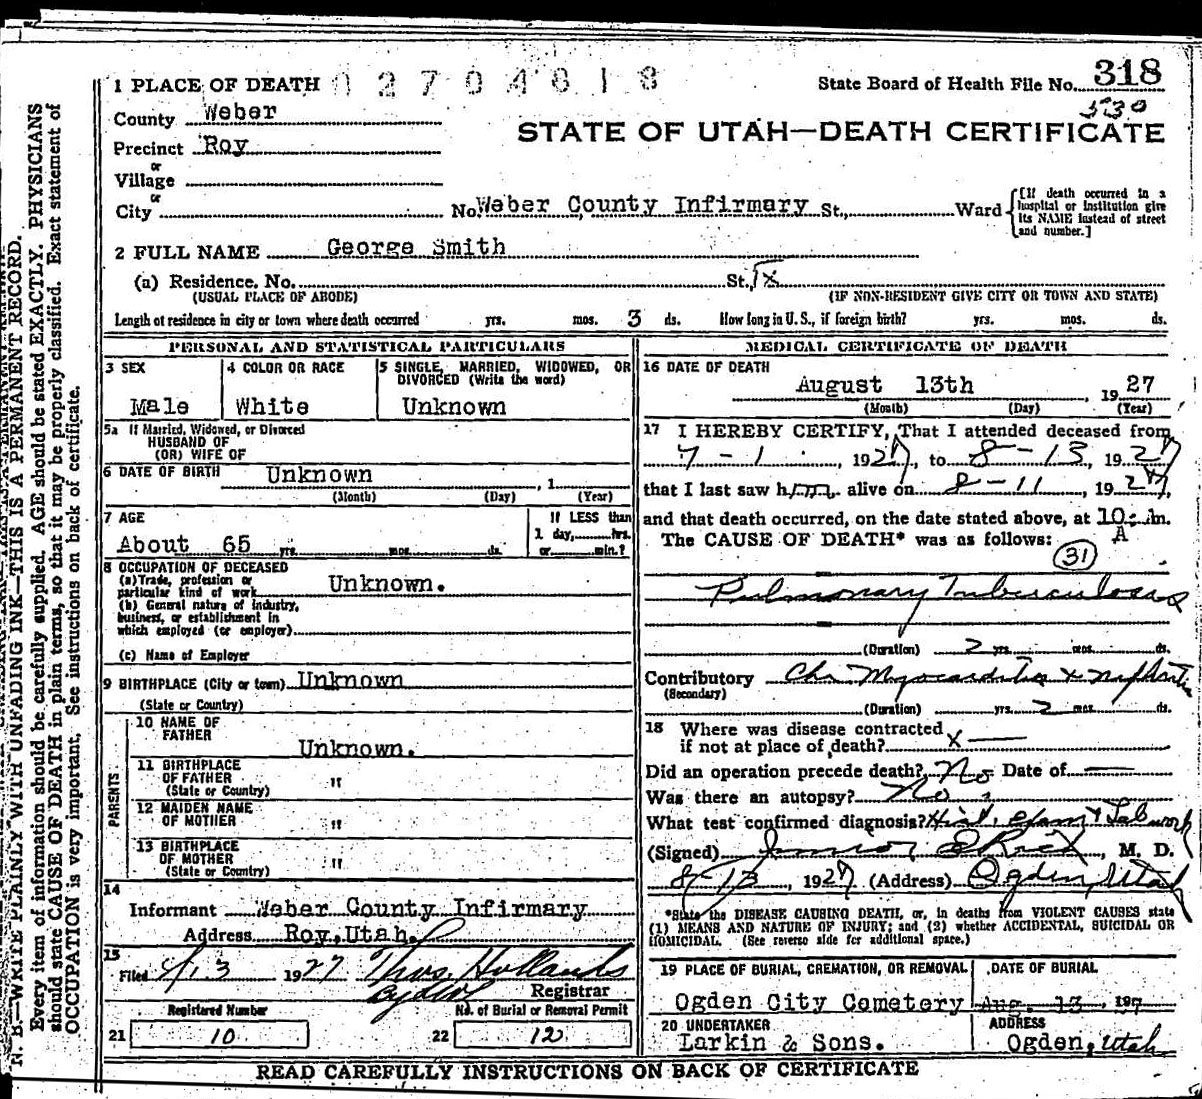 1 PLACE OF DEATH 02704618 State Board of Health File No. 318
530
County Weber
STATE OF UTAH—DEATH CERTIFICATE
Precinct Roy
or
Village
or
City No. Weber County Infirmary St., Ward [If death occurred in a hospital or institution give its NAME instead of street and number.]
2 FULL NAME George Smith
(a) Residence. No. St. x
(USUAL PLACE OF ABODE) (IF NON-RESIDENT GIVE CITY OR TOWN AND STATE)
Length of residence in city or town where death occurred yrs. mos. 3 ds. How long in U. S., if foreign birth? yrs. mos. ds.
PERSONAL AND STATISTICAL PARTICULARS
3 SEX
Male
4 COLOR OR RACE
White
5 SINGLE, MARRIED, WIDOWED, OR
DIVORCED (Write the word)
Unknown
5a If Married, Widowed, or Divorced
HUSBAND OF
(OR) WIFE OF
6 DATE OF BIRTH Unknown , 1
(Month) (Day) (Year)
7 AGE
About 65 yrs. mos. ds.
If LESS than
1 day, hrs.
or min.?
8 OCCUPATION OF DECEASED
(a) Trade, profession or
particular kind of work Unknown.
(b) General nature of industry,
business, or establishment in
which employed (or employer)
(c) Name of Employer
9 BIRTHPLACE (City or town) Unknown
(State or Country)
PARENTS
10 NAME OF
FATHER
Unknown.
11 BIRTHPLACE
OF FATHER "
(State or Country)
12 MAIDEN NAME
OF MOTHER "
13 BIRTHPLACE
OF MOTHER "
(State or Country)
14
Informant Weber County Infirmary
Address Roy, Utah.
15
Filed 8/13 1927 Thos. Hollands
Ogden Registrar
Registered Number No. of Burial or Removal Permit
21 10 22 12
MEDICAL CERTIFICATE OF DEATH
16 DATE OF DEATH
August 13th , 1927
(Month) (Day) (Year)
17 I HEREBY CERTIFY, That I attended deceased from
7 - 1 , 1927, to 8 - 13, 1927
that I last saw him alive on 8 - 11 , 1927,
and that death occurred, on the date stated above, at 10: A m.
The CAUSE OF DEATH* was as follows:
31
Pulmonary Tuberculosis
(Duration) 2 yrs. mos. ds.
Contributory Chr. Myocarditis + Nephritis
(Secondary)
(Duration) yrs. 2 mos. ds.
18 Where was disease contracted
if not at place of death? x —
Did an operation precede death? No Date of —
Was there an autopsy? No
What test confirmed diagnosis? Hist, exam + Lab work
(Signed) Junior E Rich, M. D.
8/13, 1927 (Address) Ogden, Utah
*State the DISEASE CAUSING DEATH, or, in deaths from VIOLENT CAUSES state
(1) MEANS AND NATURE OF INJURY; and (2) whether ACCIDENTAL, SUICIDAL OR
HOMICIDAL. (See reverse side for additional space.)
19 PLACE OF BURIAL, CREMATION, OR REMOVAL
Ogden City Cemetery
DATE OF BURIAL
Aug. 13, 197
20 UNDERTAKER
Larkin & Sons.
ADDRESS
Ogden, Utah
READ CAREFULLY INSTRUCTIONS ON BACK OF CERTIFICATE
N. B.—WRITE PLAINLY WITH UNFADING INK—THIS IS A PERMANENT RECORD.
Every item of information should be carefully supplied. AGE should be stated EXACTLY. PHYSICIANS
should state CAUSE OF DEATH in plain terms, so that it may be properly classified. Exact statement of
OCCUPATION is very important. See instructions on back of certificate.